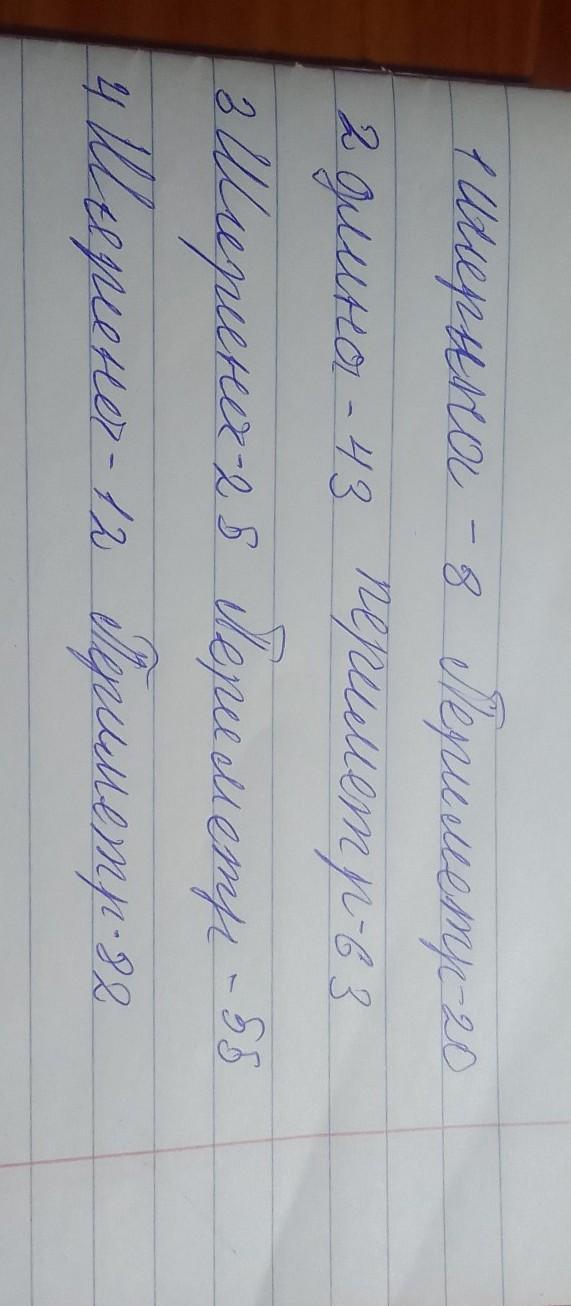 1 Ширина - 8 Периметр-20
2 длина - 43 периметр-63
3 Ширина-25 Периметр - 55
4 Ширена - 12 Периметр-32